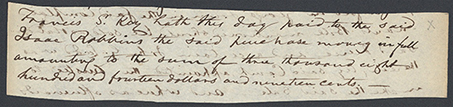 Francis S Key hath this day paid to the said
Isaac Robbins the said purchase money in full
amounting to the sum of three thousand eight
hundred and fourteen dollars and nineteen cents —